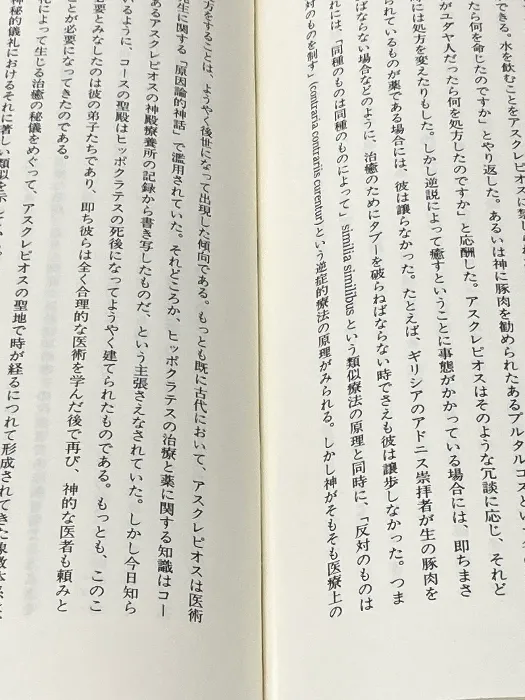 できる。水を飲むことをアスクレピオスに禁じ
たら何を命じたのですか」とやり返した。あるいは神に豚肉を勧められたあるプルタルコスという
がユダヤ人だったら何を処方したのですか」と応酬した。アスクレピオスはそのような冗談に応じ、それど
には処方を変えたりもした。しかし逆説によって癒すということに事態がかかっている場合には、即ちまさ
られているものが薬である場合には、彼は譲らなかった。たとえば、ギリシアのアドニス崇拝者が生の豚肉を
ばならない場合などのように、治癒のためにタブーを破らねばならない時でさえも彼は譲歩しなかった。つま
れには、「同種のものは同種のものによって」similia similibus という類似療法の原理と同時に、「反対のものは
対のものを制す」(contraria contrariis curentur) という逆症的療法の原理がみられる。しかし神がそもそも医療上の
方をすることは、ようやく後世になって出現した傾向である。もっとも既に古代において、アスクレピオスは医術
生に関する「原因論的神話」で濫用されていた。それどころか、ヒッポクラテスの治療と薬に関する知識はコー
あるアスクレピオスの神殿療養所の記録から書き写したものだ、という主張さえなされていた。しかし今日知ら
いるように、コースの聖殿はヒッポクラテスの死後になってようやく建てられたものである。もっとも、このこ
必要とみなしたのは彼の弟子たちであり、即ち彼らは全く合理的な医術を学んだ後で再び、神的な医者も頼みと
ことが必要になってきたのである。
礼によって生じる治癒の秘儀をめぐって、アスクレピオスの聖地で時が経るにつれて形成されてきた
神秘的儀礼におけるそれに著しい類似を示し